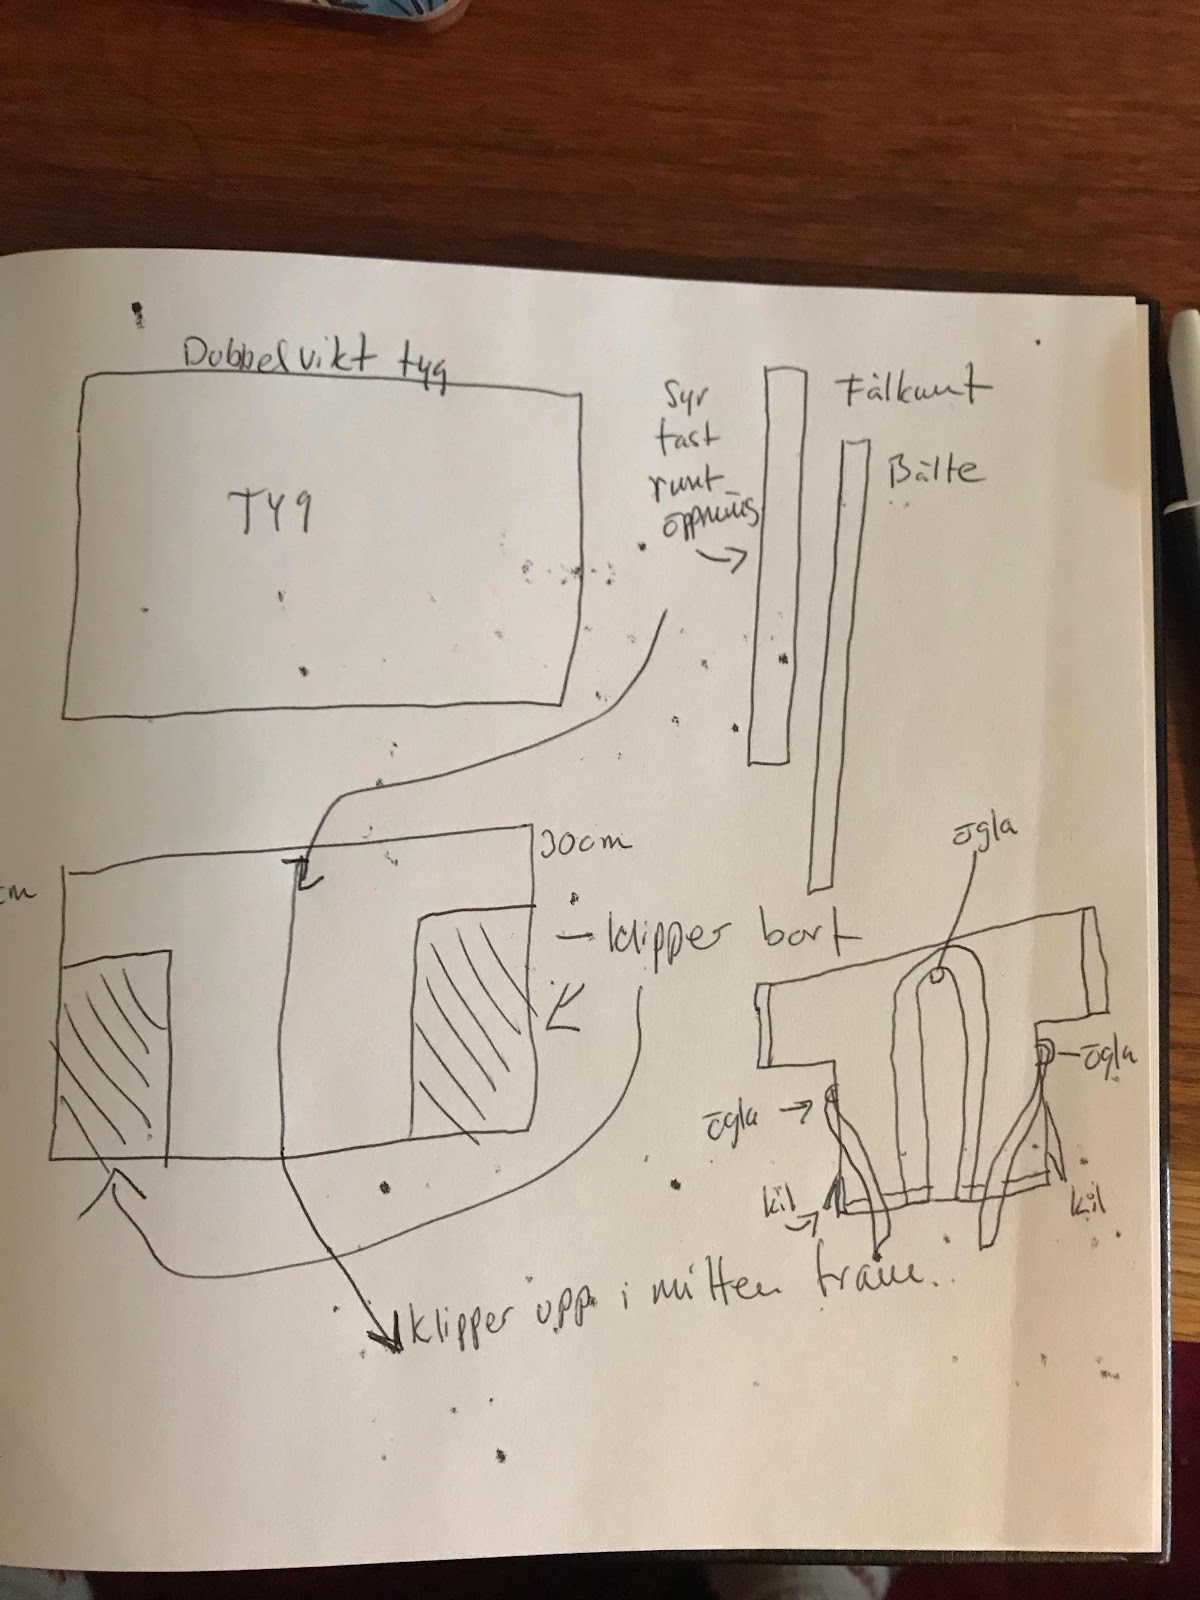 Dubbelvikt tyg
TYg
Syr
fast
runt
öppning
Fålkant
Bälte
30cm
cm
klipper bort
ögla
ögla
ögla
kil
kil
klipper upp i mitten fram.